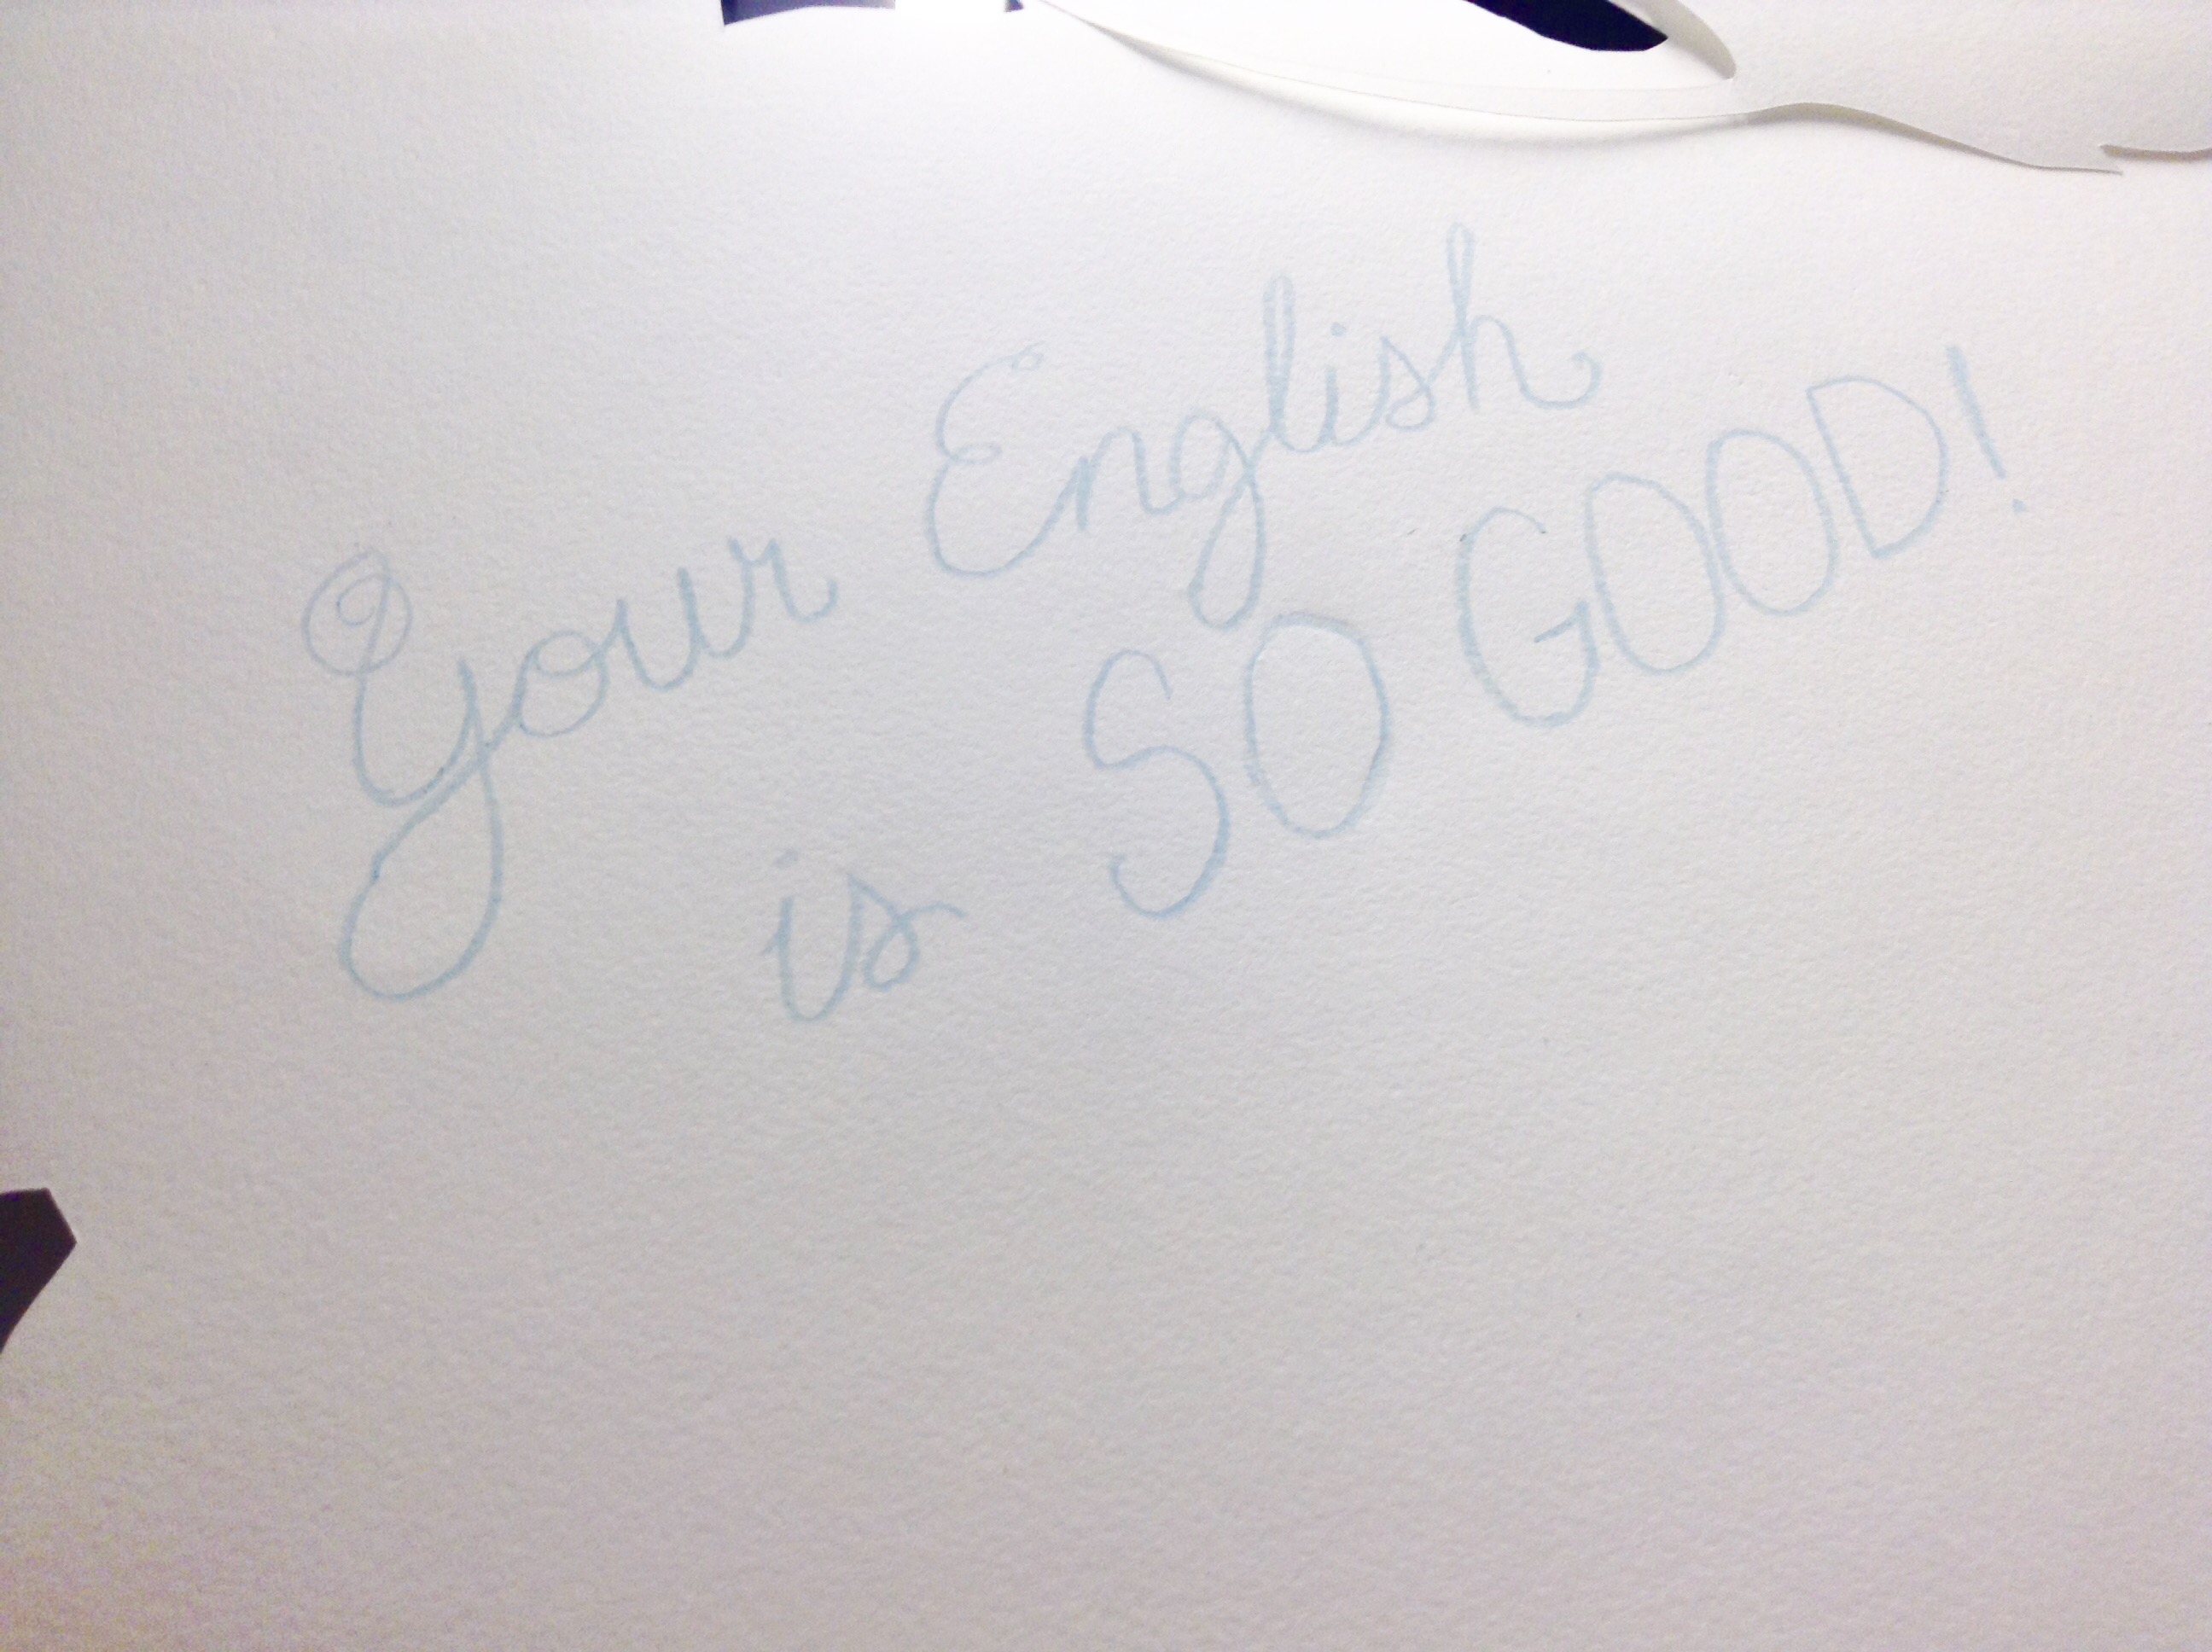 Your English
is SO GOOD!